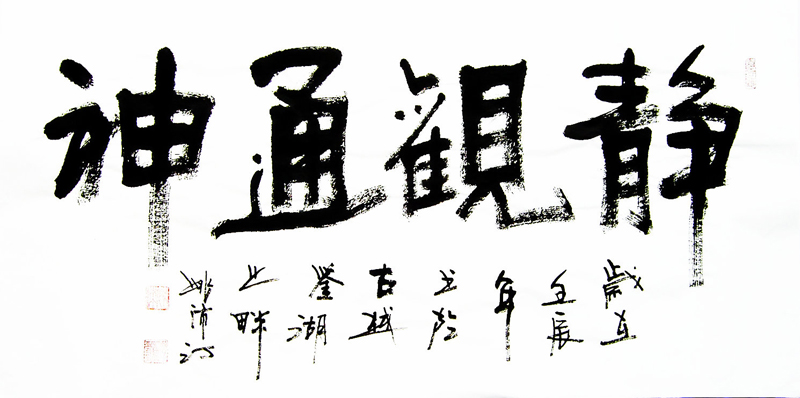 静觀通神
歲在
壬辰
年
书於
古越
鑒湖
之畔